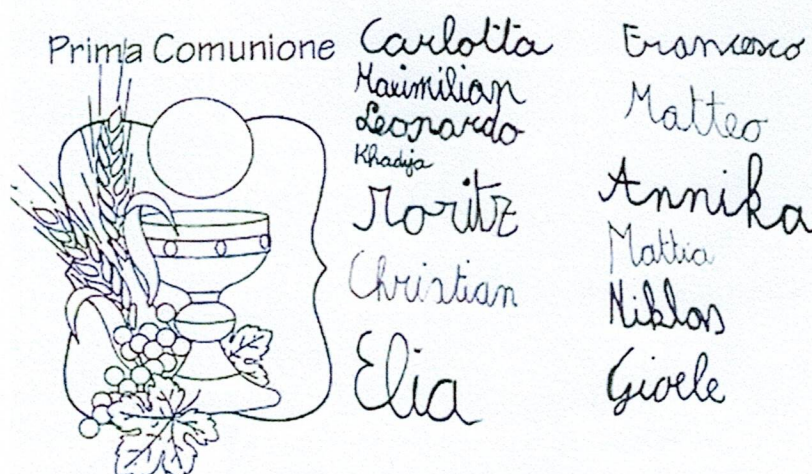 Prima Comunione
Carlotta
Maximilian
Leonardo
Khadija
Moritz
Christian
Elia
Francesco
Matteo
Annika
Mattia
Niklas
Gioele